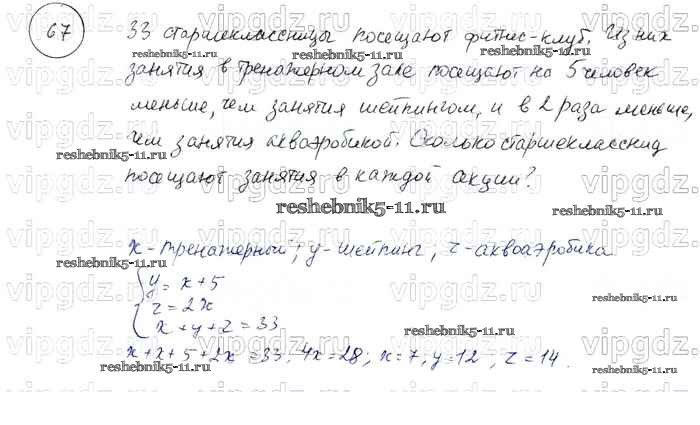 67 33 старшеклассницы посещают фитнес-клуб. Из них
занятия в тренажерном зале посещают на 5 человек
меньше, чем занятия шейпингом, и в 2 раза меньше,
чем занятия аквааэробикой. Сколько старшеклассниц
посещают занятия в каждой секции?
x - тренажерный; y - шейпинг; z - аквоаэробика
y = x + 5
z = 2x
x + y + z = 33
x + x + 5 + 2x = 33; 4x = 28; x = 7, y = 12, z = 14.
vipgdz.ru
reshebnik5-11.ru